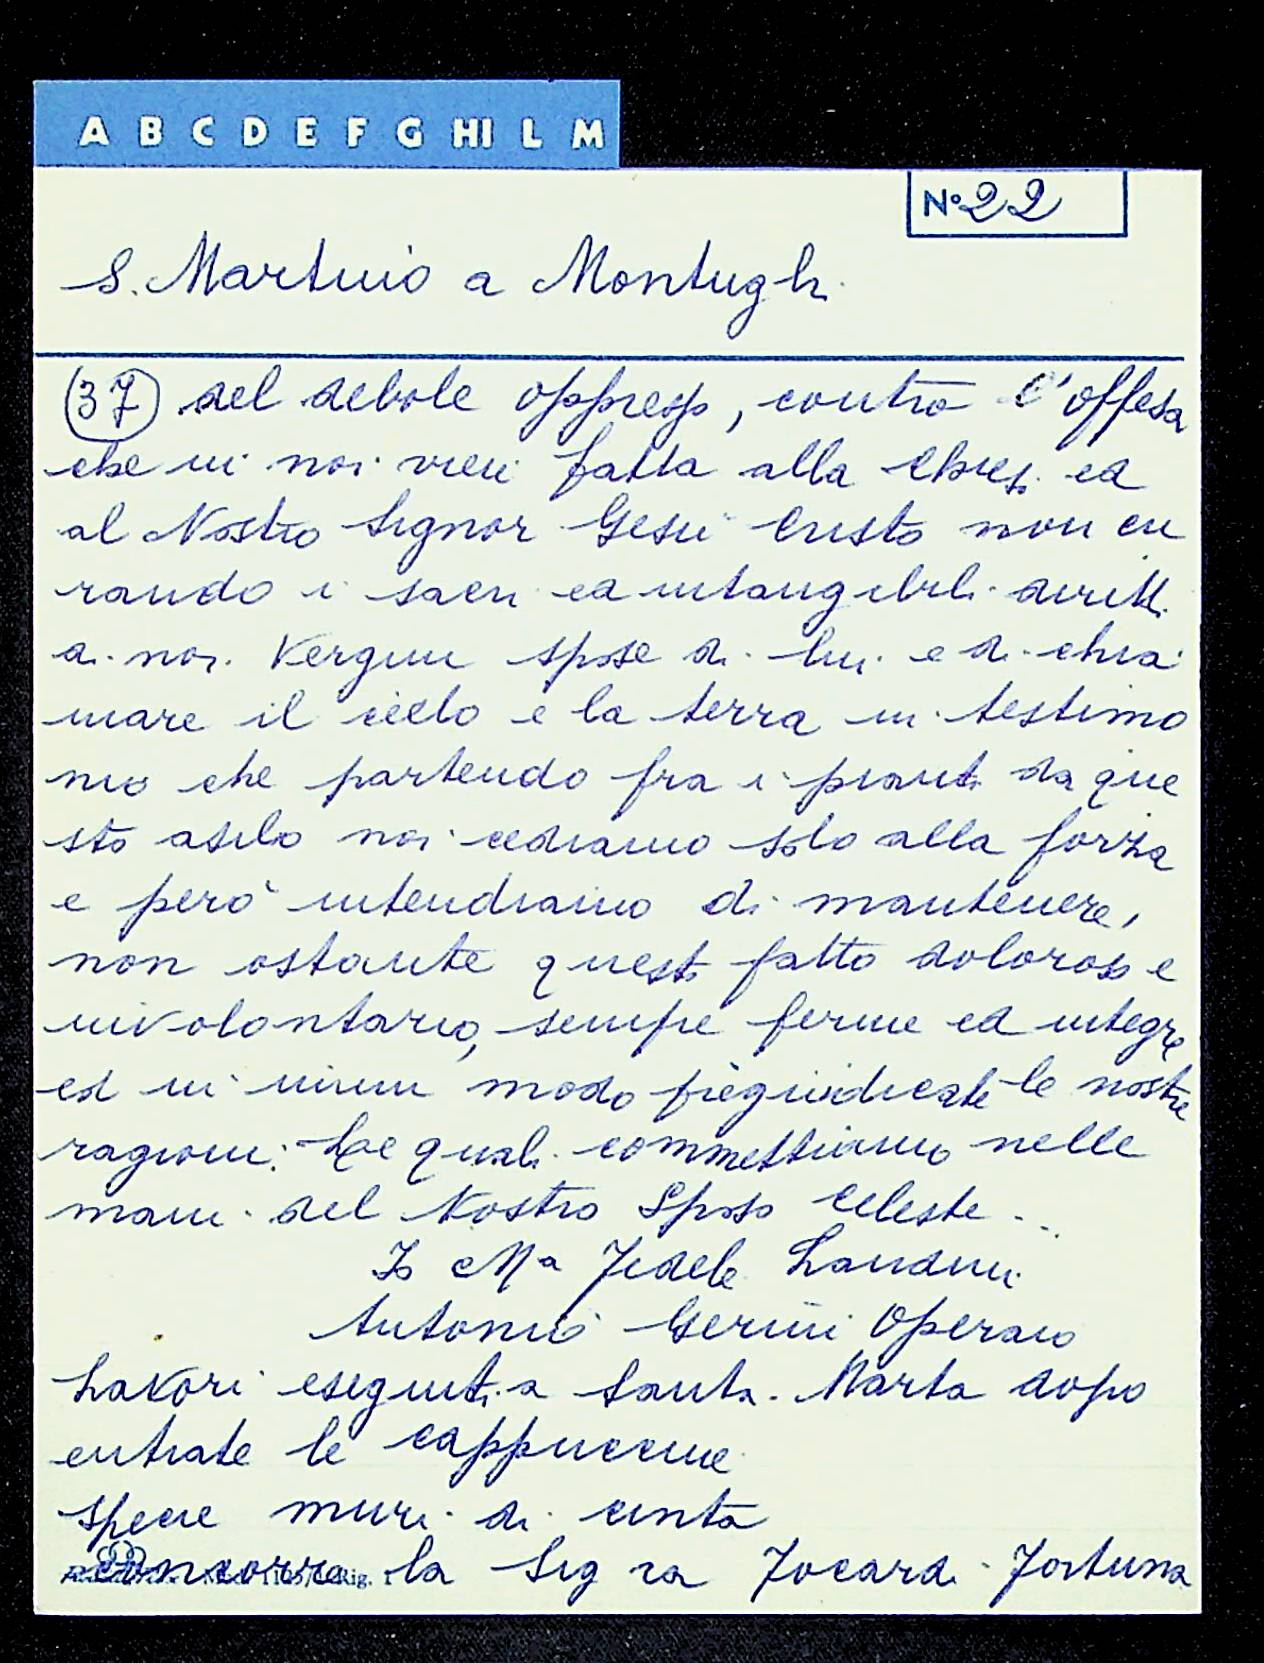 A B C D E F G HI L M
N° 22
S. Martino a Montughi
(37) del debole oppresso, contro l'offesa
che in noi vien fatta alla Chiesa ed
al Nostro Signor Gesù Cristo non cu
rando i sacri ed intangibili diritti
di noi Vergini spose di lui e di chia
mare il cielo e la terra in testimo
nio che partendo fra i pianti da que
sto asilo noi cediamo solo alla forza
e però intendiamo di mantenere,
non ostante questo fatto doloroso e
involontario, sempre ferme ed integre
ed in niun modo pregiudicate le nostre
ragioni: Le quali commettiamo nelle
mani del Nostro Sposo Celeste...
Io Mª Fedele Landini
Antonio Gerini Operaio
Lavori eseguiti a Santa Marta dopo
entrate le cappuccine
specie muri di cinta
concorre la Sig ra Focardi Fortuna